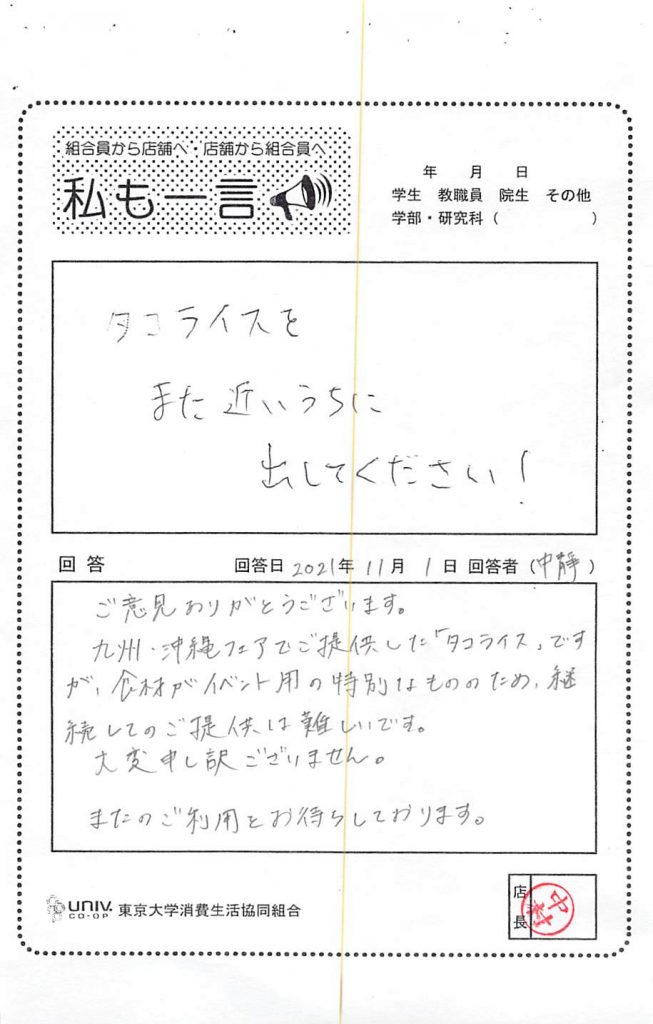 組合員から店舗へ・店舗から組合員へ
私も一言
年 月 日
学生 教職員 院生 その他
学部・研究科( )
タコライスを
また近いうちに
出してください!
回答 回答日 2021年 11月 1日 回答者(中靜)
ご意見ありがとうございます。
九州・沖縄フェアでご提供した「タコライス」です
が、食材がイベント用の特別なもののため、継
続してのご提供は難しいです。
大変申し訳ございません。
またのご利用をお待ちしております。
UNIV. CO-OP 東京大学消費生活協同組合
店長
中村